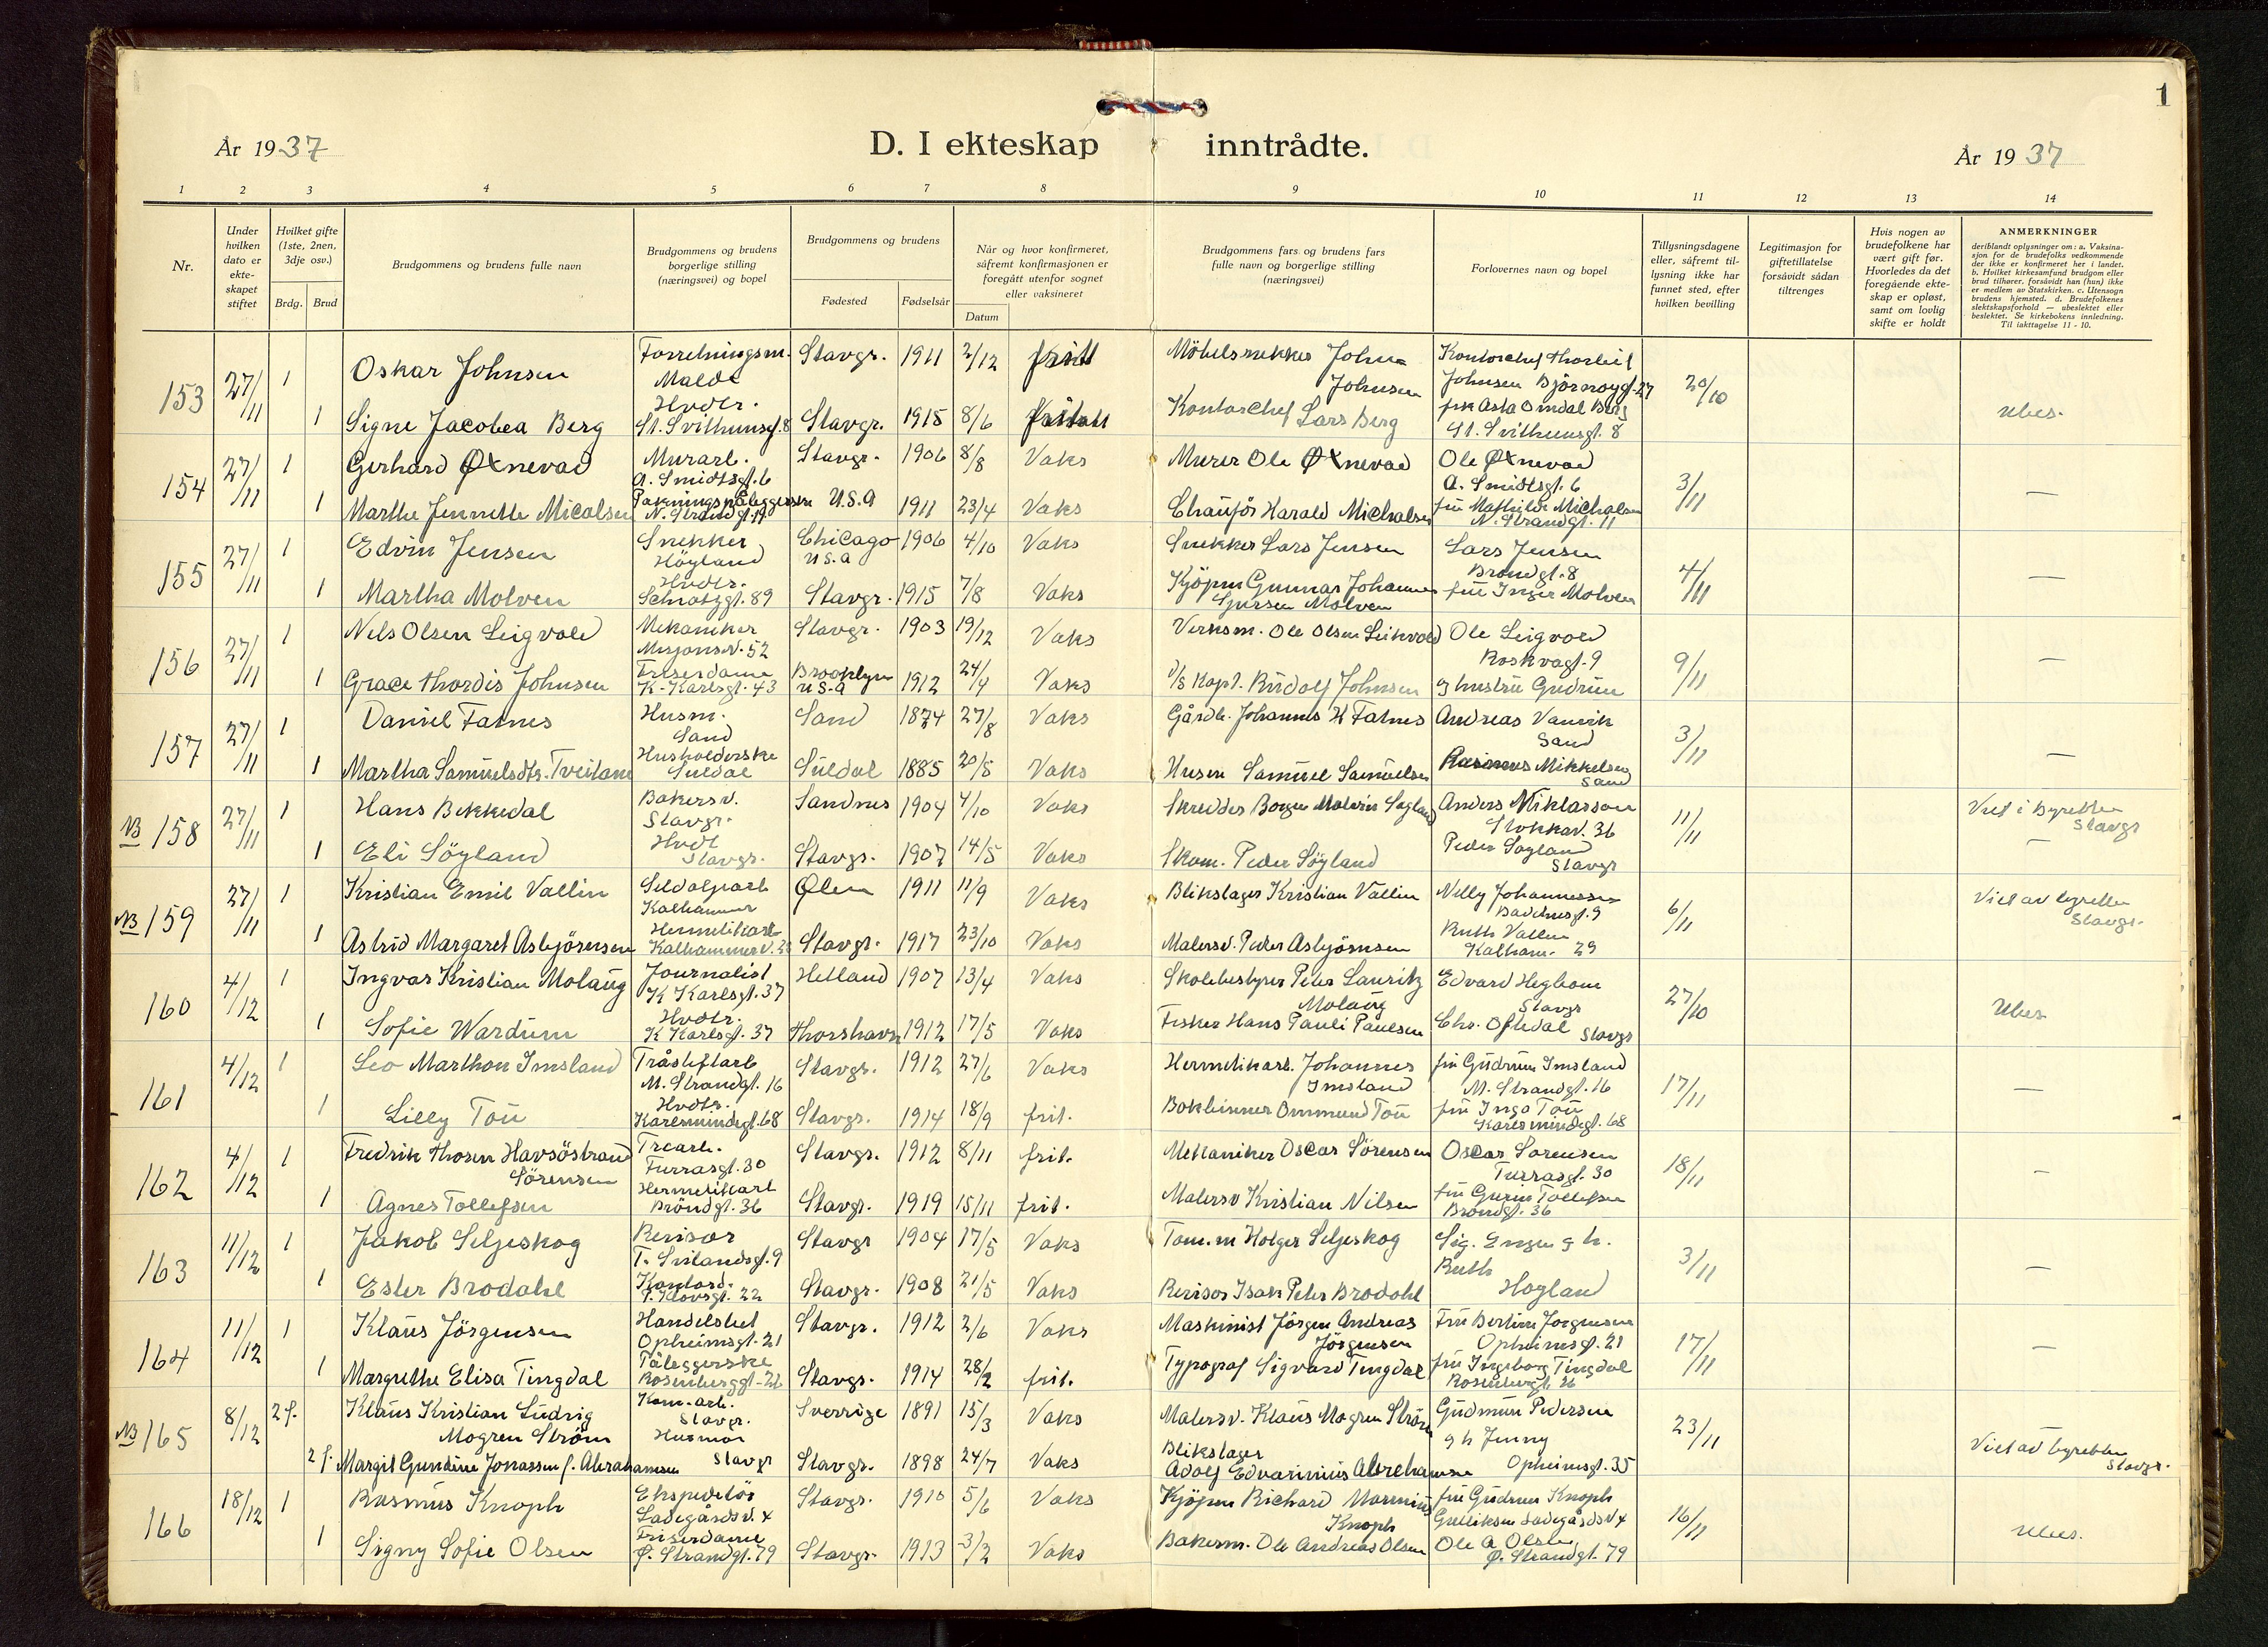 1
År 1937
D. I ekteskap inntrådte.
År 1937
1 2 3 4 5 6 7 8 9 10 11 12 13 14
Nr.
Under hvilken dato er ekte-skapet stiftet
Hvilket gifte (1ste, 2nen, 3dje osv.)
Brdg. Brud
Brudgommens og brudens fulle navn
Brudgommens og brudens borgerlige stilling (næringsvei) og bopel
Brudgommens og brudens
Fødested Fødselsår
Når og hvor konfirmeret, såfremt konfirmasjonen er foregått utenfor sognet eller vaksineret
Datum
Brudgommens fars og brudens fars fulle navn og borgerlige stilling (næringsvei)
Forlovernes navn og bopel
Tillysningsdagene eller, såfremt til-lysning ikke har funnet sted, efter hvilken bevilling
Legitimasjon for giftetillatelse forsåvidt sådan tiltrenges
Hvis nogen av brudefolkene har vært gift før. Hvorledes da det foregående ekte-skap er opløst, samt om lovlig skifte er holdt
ANMERKNINGER
deriblandt oplysninger om: a. Vaksina-sjon for de brudefolks vedkommende der ikke er konfirmeret her i landet. b. Hvilket kirkesamfund brudgom eller brud tilhører, forsåvidt han (hun) ikke er medlem av Statskirken. c. Utensogn brudens hjemsted. d. Brudefolkenes slektskapsforhold — ubeslektet eller beslektet. Se kirkebokens innledning. Til iakttagelse 11 - 10.
153 27/11 1 Oskar Johnsen Forretningsm. Malde Stavgr. 1911 2/12 fritt Möbelsnekker John Johnsen Kontorchef Thorleif Johnsen Bjørnøygt. 27 20/10
1 Signe Jacobea Berg Hvdtr. St. Svithunsgt. 8 Stavgr. 1915 8/6 Kontorchef Lars Berg frk Asta Omdal Berg St. Svithunsgt. 8 ubes.
154 27/11 1 Gerhard Øxnevad Murarb. A. Smidtsgt. 6 Stavgr. 1906 8/8 Vaks Murer Ole Øxnevad Ole Øxnevad A. Smidtsgt. 6 3/11 —
1 Marthe Jennette Micalsen N. Strandgt. 19 U.S.A 1911 23/4 Vaks Chauför Harald Michalsen frü Mathilde Michalsen N. Strandgt. 11
155 27/11 1 Edvin Jensen Snekker Höyland Chicago U.S.A 1906 4/10 Vaks Snekker Lars Jensen Lars Jensen Bröndgt. 8 4/11 —
1 Martha Molven Hvdtr. Schiøtzgt. 89 Stavgr. 1915 7/8 Vaks Kjöpm Gunnar Johannes Molven frü Inger Molven
156 27/11 1 Nels Olsen Leigvold Mekaniker Misjonsv. 52 Stavgr. 1903 19/12 Vaks Verksm. Ole Olsen Leikvold Ole Leigvold Roskvagt. 9 9/11 —
1 Grace Thordis Johnsen Friserdame K. Karlsgt. 43 Brooklyn U.S.A 1912 24/4 Vaks D/S Kapt. Rüdolf Johnsen og hustru Gudrün
157 27/11 1 Daniel Fatnes Husm. Sand Sand 1874 27/8 Vaks Gårdb. Johannes K Fatnes Andreas Vanvik Sand 3/11 —
1 Martha Samuelsdtr. Tveitane Husholderske Suldal Süldal 1885 20/5 Vaks Husm Samüel Samüelsen Rasmus Mikkelsen Sand
NB 158 27/11 1 Hans Bekkedal Bakersv. Stavgr. Sandnes 1904 4/10 Vaks Skredder Borger Malvin Søgland Anders Niklasson Stokkav. 36 11/11 Viet i Byretten Stavgr
1 Eli Söyland Hvdt Stavgr. Stavgr. 1907 14/5 Vaks Skom. Peder Söyland Peder Søyland Stavgr —
NB 159 27/11 1 Kristian Emil Vallin Kalhammer Ølen 1911 11/9 Vaks Blikslager Kristian Vallin Nelly Johannessen 6/11 Viet av byretten Stavgr.
1 Astrid Margaret Asbjörensen Hermetikarb Kalhammerv. 29 Stavgr. 1917 23/10 Vaks Malersv. Peder Asbjörnsen Ruth Vallin Kalham. 29
160 4/12 1 Ingvar Kristian Molaüg Journalist K Karlsgt. 37 Hetland 1907 13/4 Vaks Skolebestyrer Peter Lauritz Molaüg Edvard Hegbom Stavgr 27/10 Ubes
1 Sofie Wardüm Hvdtr. K Karlsgt. 37 Thorshavn 1912 17/5 Vaks Fisker Hans Pauli Paulsen Chr. Oftedal Stavgr
161 4/12 1 Leo Marthon Imsland Tråsliftarb M. Strandgt. 16 Stavgr. 1912 27/6 Vaks Hermetikarb. Johannes Imsland frü Güdrün Imsland M. Strandgt. 16 17/11 —
1 Lilly Toü Hvdtr. Karlsmindegt. 68 Stavgr. 1914 18/9 frit. Bokbinner Ommund Toü frü Inga Toü Karlsmindegt. 68
162 4/12 1 Fredrik Thosen Havsöstrand Sörensen Trearb. Turrasgt. 30 Stavgr. 1912 8/11 frit. Mekaniker Oscar Sörensen Oscar Sorensen Turrasgt. 30 18/11 —
1 Agnes Tollefsen Hermetikarb Bröndgt. 36 Stavgr. 1919 15/11 frit. Malersv Kristian Nilsen frü Güriü Tollefsen Bröndgt. 36
163 11/12 1 Jakob Seljeskog Revisor Stavgr 1904 17/5 Vaks Tom. m Holger Seljeskog Sig. Engen g h. Ruth 3/11 —
1 Ester Brodahl Kontord. 22 Stavgr. 1908 21/5 Vaks Revisor Isak Peter Brodahl Hogland
164 11/12 1 Klaüs Jörgensen Handelsbet Opheimsgt. 21 Stavgr. 1912 2/6 Vaks Maskinist Jörgen Andreas Jörgensen Frü Bertine Jorgensen Opheimsgt. 21 17/11 —
1 Margrethe Elisa Tingdal Påleggerske Rosenberggt. 26 Stavgr. 1914 28/2 frit. Typograf Sigvard Tingdal frü Ingeborg Tingdal Rosenbergt. 26
NB 165 8/12 2 f. Klaüs Kristian Lüdvig Mogren Ström Kom. arb. Stavgr. Sverrige 1891 15/3 Vaks Malersv. Klaüs Mogren Ström Güdmün Pedersen g h Jenny 23/11 Viet av byretten Stavgr.
2 f. Margit Gundine Jonassen f. Abrahamsen Husmor Stavgr Stavgr. 1898 24/7 Vaks Blikslager Adolf Edvardinius Abrahamsen Opheimsgt. 35
166 18/12 1 Rasmüs Knoph Ekspeditör Ladegårdsv. 4 Stavgr. 1910 5/6 Vaks Kjöpm Richard Marenius Knoph frü Güdrün Knoph Ladegårdsv 4 16/11 ubes.
1 Signy Sofie Olsen Friserdame Ø. Strandgt. 79 Stavgr. 1913 3/2 Vaks Bakerm. Ole Andreas Olsen Ole A Olsen Ø. Strandgt. 79